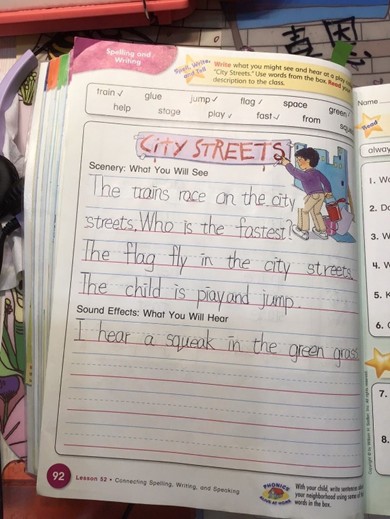 Spelling and
Writing
Think, Write,
and Tell
Write what you might see and hear at a play
"City Streets." Use words from the box. Read
description to the class.
train ✓ glue jump ✓ flag ✓ space green
help stage play ✓ fast ✓ from
CITY STREETS
Scenery: What You Will See
The trains race on the city
streets. Who is the fastest?
The flag fly in the city streets.
The child is play and jump.
Sound Effects: What You Will Hear
I hear a squeak in the green grass
92 Lesson 52 • Connecting Spelling, Writing, and Speaking
PHONICS
AT HOME
With your child, write sentences
your neighborhood using some of
words in the box.
Name
Read
1.
2.
3.
4.
5.
6.
7.
8.
喜 因